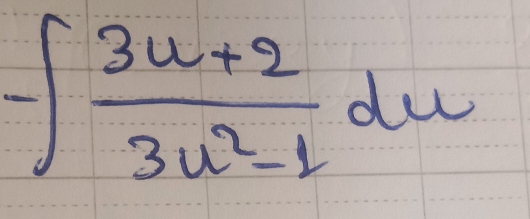 -∫ (3u+2)/(3u²-1) du